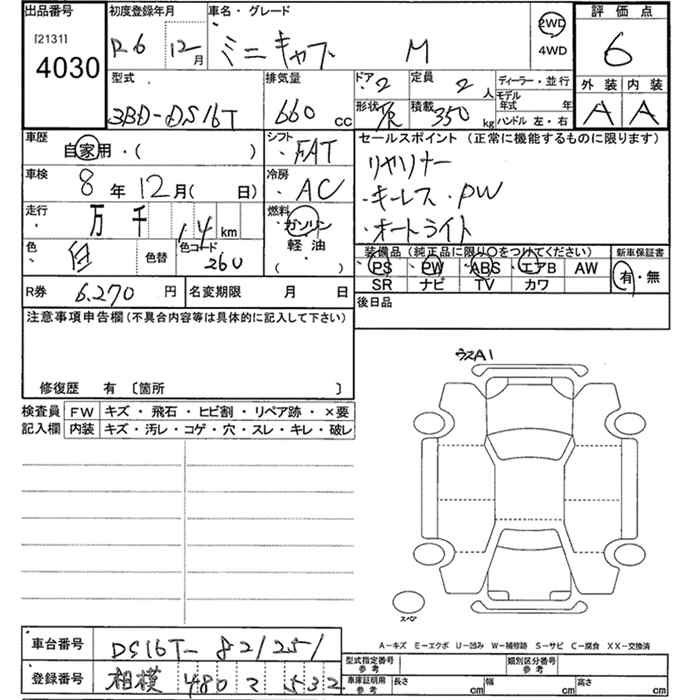 出品番号 初度登録年月 車名・グレード 2WD 評価点
[2131] R6年 12月 ミニキャブ M 4WD 6
4030
型式 排気量 ドア 2 定員 2人 ディーラー・並行 外装 内装
3BD-DS16T 660cc 形状 積載 350kg モデル年式 年 A A
ハンドル 左・右
車歴 シフト セールスポイント (正常に機能するものに限ります)
自家用・( ) ・FAT リヤヒーター
車検 冷房 ・キーレス・PW
8年 12月( 日) ・AC ・オートライト
走行 万 千 14 km 燃料 ガソリン
軽油
( )
色 白 色替 色コード 26U 装備品 (純正品に限り○をつけてください) 新車保証書
PS PW ABS エアB AW 有・無
SR ナビ TV カワ
R券 6,270円 名変期限 月 日 後日品
注意事項申告欄 (不具合内容等は具体的に記入して下さい)
修復歴 有 〔箇所 〕
検査員 FW キズ ・ 飛石 ・ ヒビ割 ・ リペア跡 ・ ×要
記入欄 内装 キズ・汚レ・コゲ・穴・スレ・キレ・破レ
ウスA1
スペア
A-キズ E-エクボ U-凹み W-補修跡 S-サビ C-腐食 XX-交換済
車台番号 DS16T-821251 型式指定番号 参考 類別区分番号 参考
登録番号 相模 480 2 532 車庫証明用 参考 長さ cm 幅 cm 高さ cm